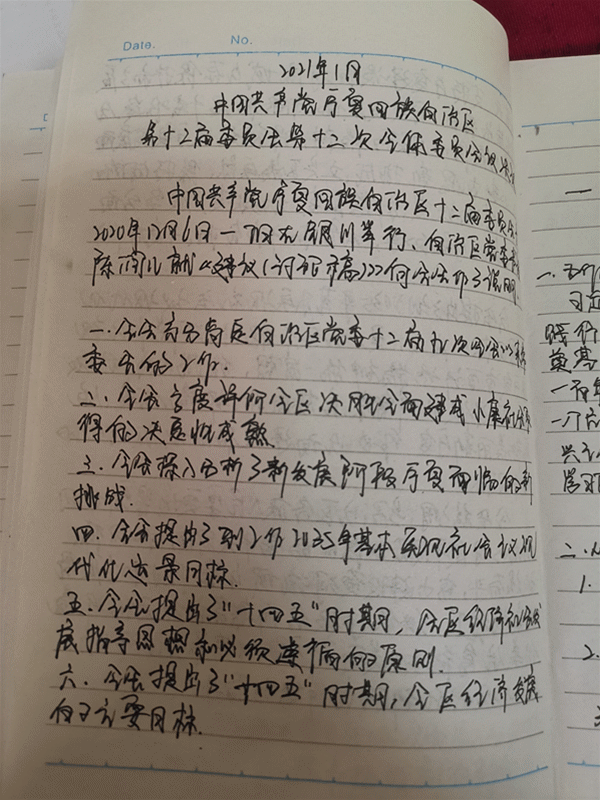 Date.
No.
2021年1月
中国共产党宁夏回族自治区
第十二届委员会第十二次全体委员会议
中国共产党宁夏回族自治区十二届委员会
2020年12月6日一7日在银川举行、自治区党委
就《建议(讨论稿)》向全会作了说明
一.全会充分肯定自治区党委十二届九次全会以来
委员的工作.
二.全会高度评价全区决胜全面建成小康社会
得的决定性成就.
三.全会深入分析了新发展阶段宁夏面临的新
挑战.
四.全会提出了到2035年基本实现社会主义现
代化远景目标.
五.全会提出了"十四五"时期,全区经济社会发
展指导思想和必须遵循的原则.
六.全会提出了"十四五"时期,全区经济发展
的主要目标.
一.
二.
1.
2.